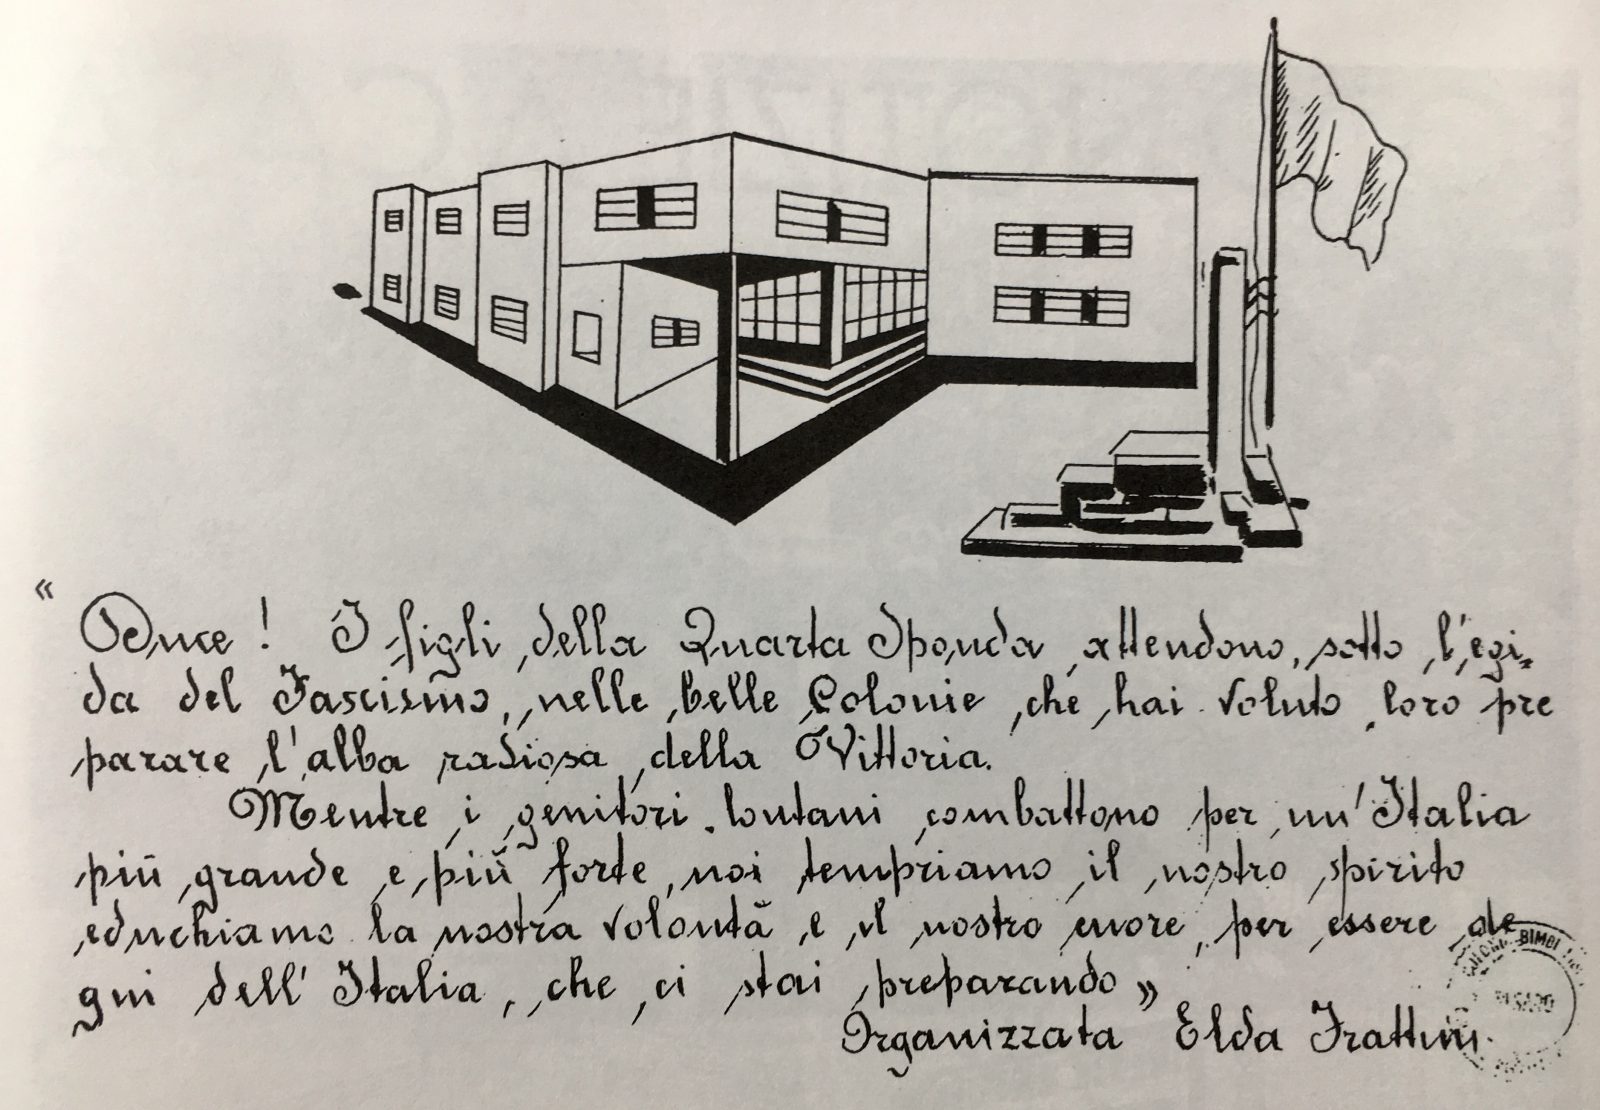 « Duce! I figli della Quarta Sponda attendono, sotto l'egi-
da del Fascismo, nelle belle Colonie che hai voluto loro pre
parare l'alba radiosa della Vittoria.
Mentre i genitori lontani combattono per un'Italia
più grande e più forte, noi tempriamo il nostro spirito
educhiamo la nostra volontà e il nostro cuore, per essere de
gni dell'Italia, che ci stai preparando »
Organizzata Elda Frattini.
BIMBI